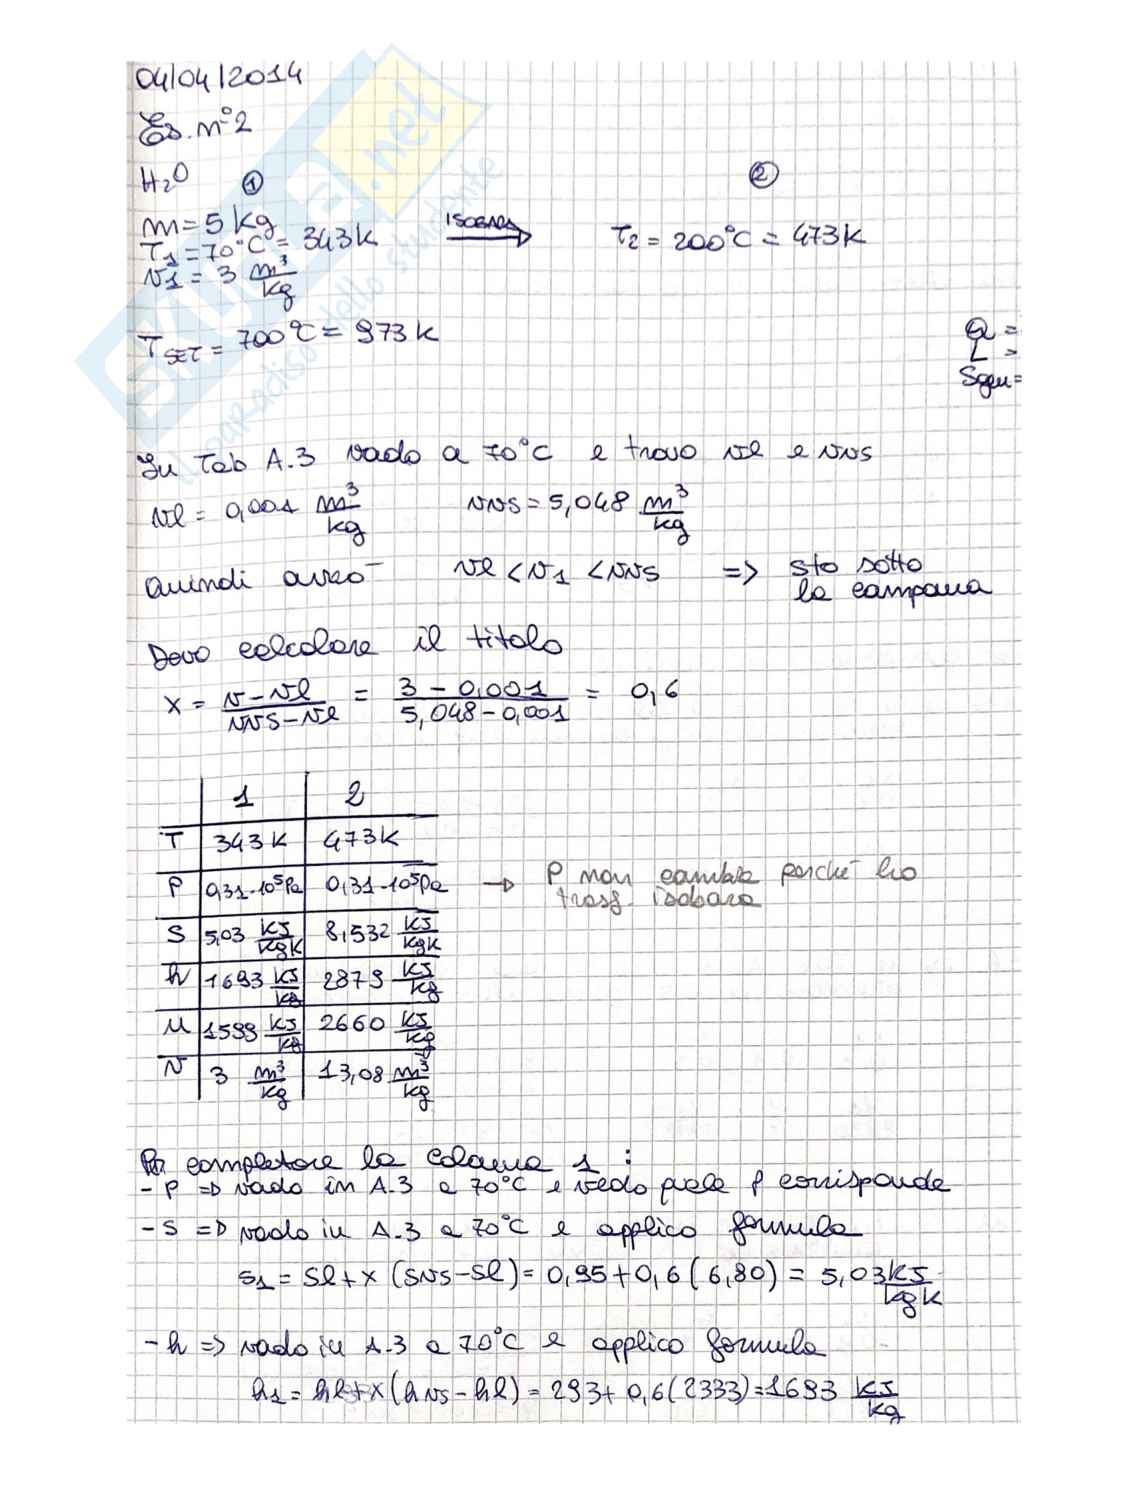 04/04/2014
Es. n°2
H₂O ① ②
m = 5 kg
T₁ = 70°C = 343K ISOBARA ⟹ T₂ = 200°C = 473K
v₁ = 3 m³/kg
T_SET = 700°C = 973K
Q =
L =
Sgen =
In Tab A.3 vado a 70°C e trovo vl e vvs
vl = 0,001 m³/kg vvs = 5,048 m³/kg
Quindi avrò vl < v₁ < vvs => sto sotto
la campana
Devo calcolare il titolo
x = (v - vl)/(vvs - vl) = (3 - 0,001)/(5,048 - 0,001) = 0,6
1 2
T 343K 473K
P 0,31·10⁵Pa 0,31·10⁵Pa → P non cambia perché ho
trasf. isobara
S 5,03 kJ/kgK 8,532 kJ/kgK
h 1693 kJ/kg 2879 kJ/kg
u 1599 kJ/kg 2660 kJ/kg
v 3 m³/kg 13,08 m³/kg
Per completare la colonna 1 :
- P => vado in A.3 a 70°C e vedo quale P corrisponde
- S => vado in A.3 a 70°C e applico formula
s₁ = sl + x (svs - sl) = 0,95 + 0,6 (6,80) = 5,03 kJ/kgK
- h => vado in A.3 a 70°C e applico formula
h₁ = hl + x (hvs - hl) = 293 + 0,6 (2333) = 1693 kJ/kg
skuola.net
il paradiso dello studente